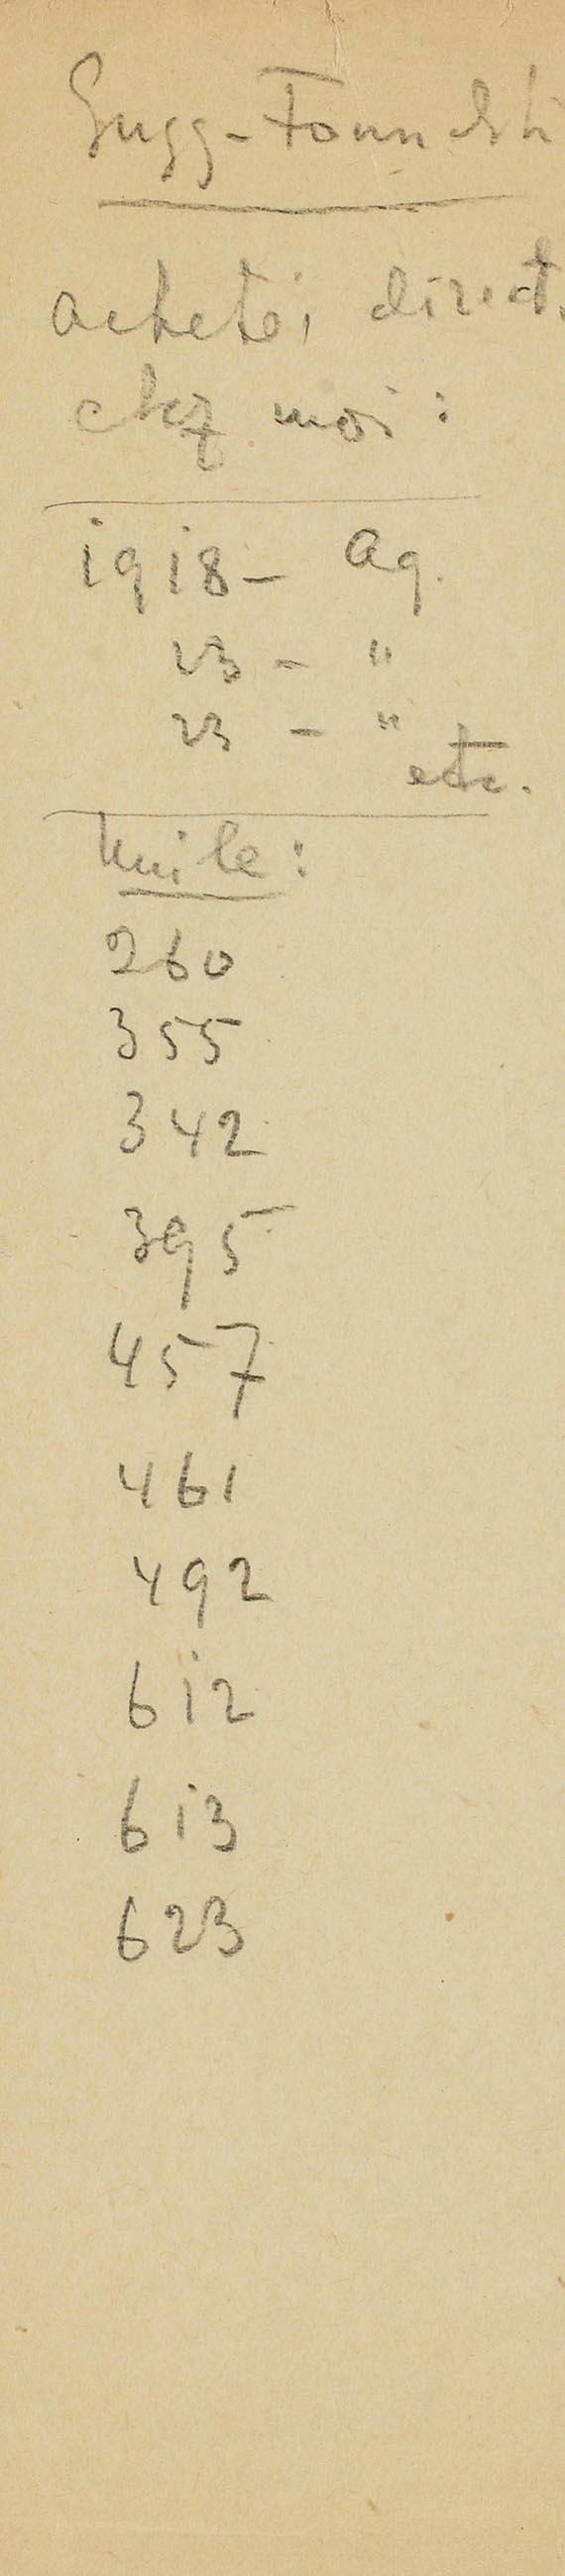 Gugg-Foundati
achetés direct.
chez moi :
1918 - aq.
23 - "
23 - "
etc.
huile :
260
355
342
395
457
461
492
612
613
623